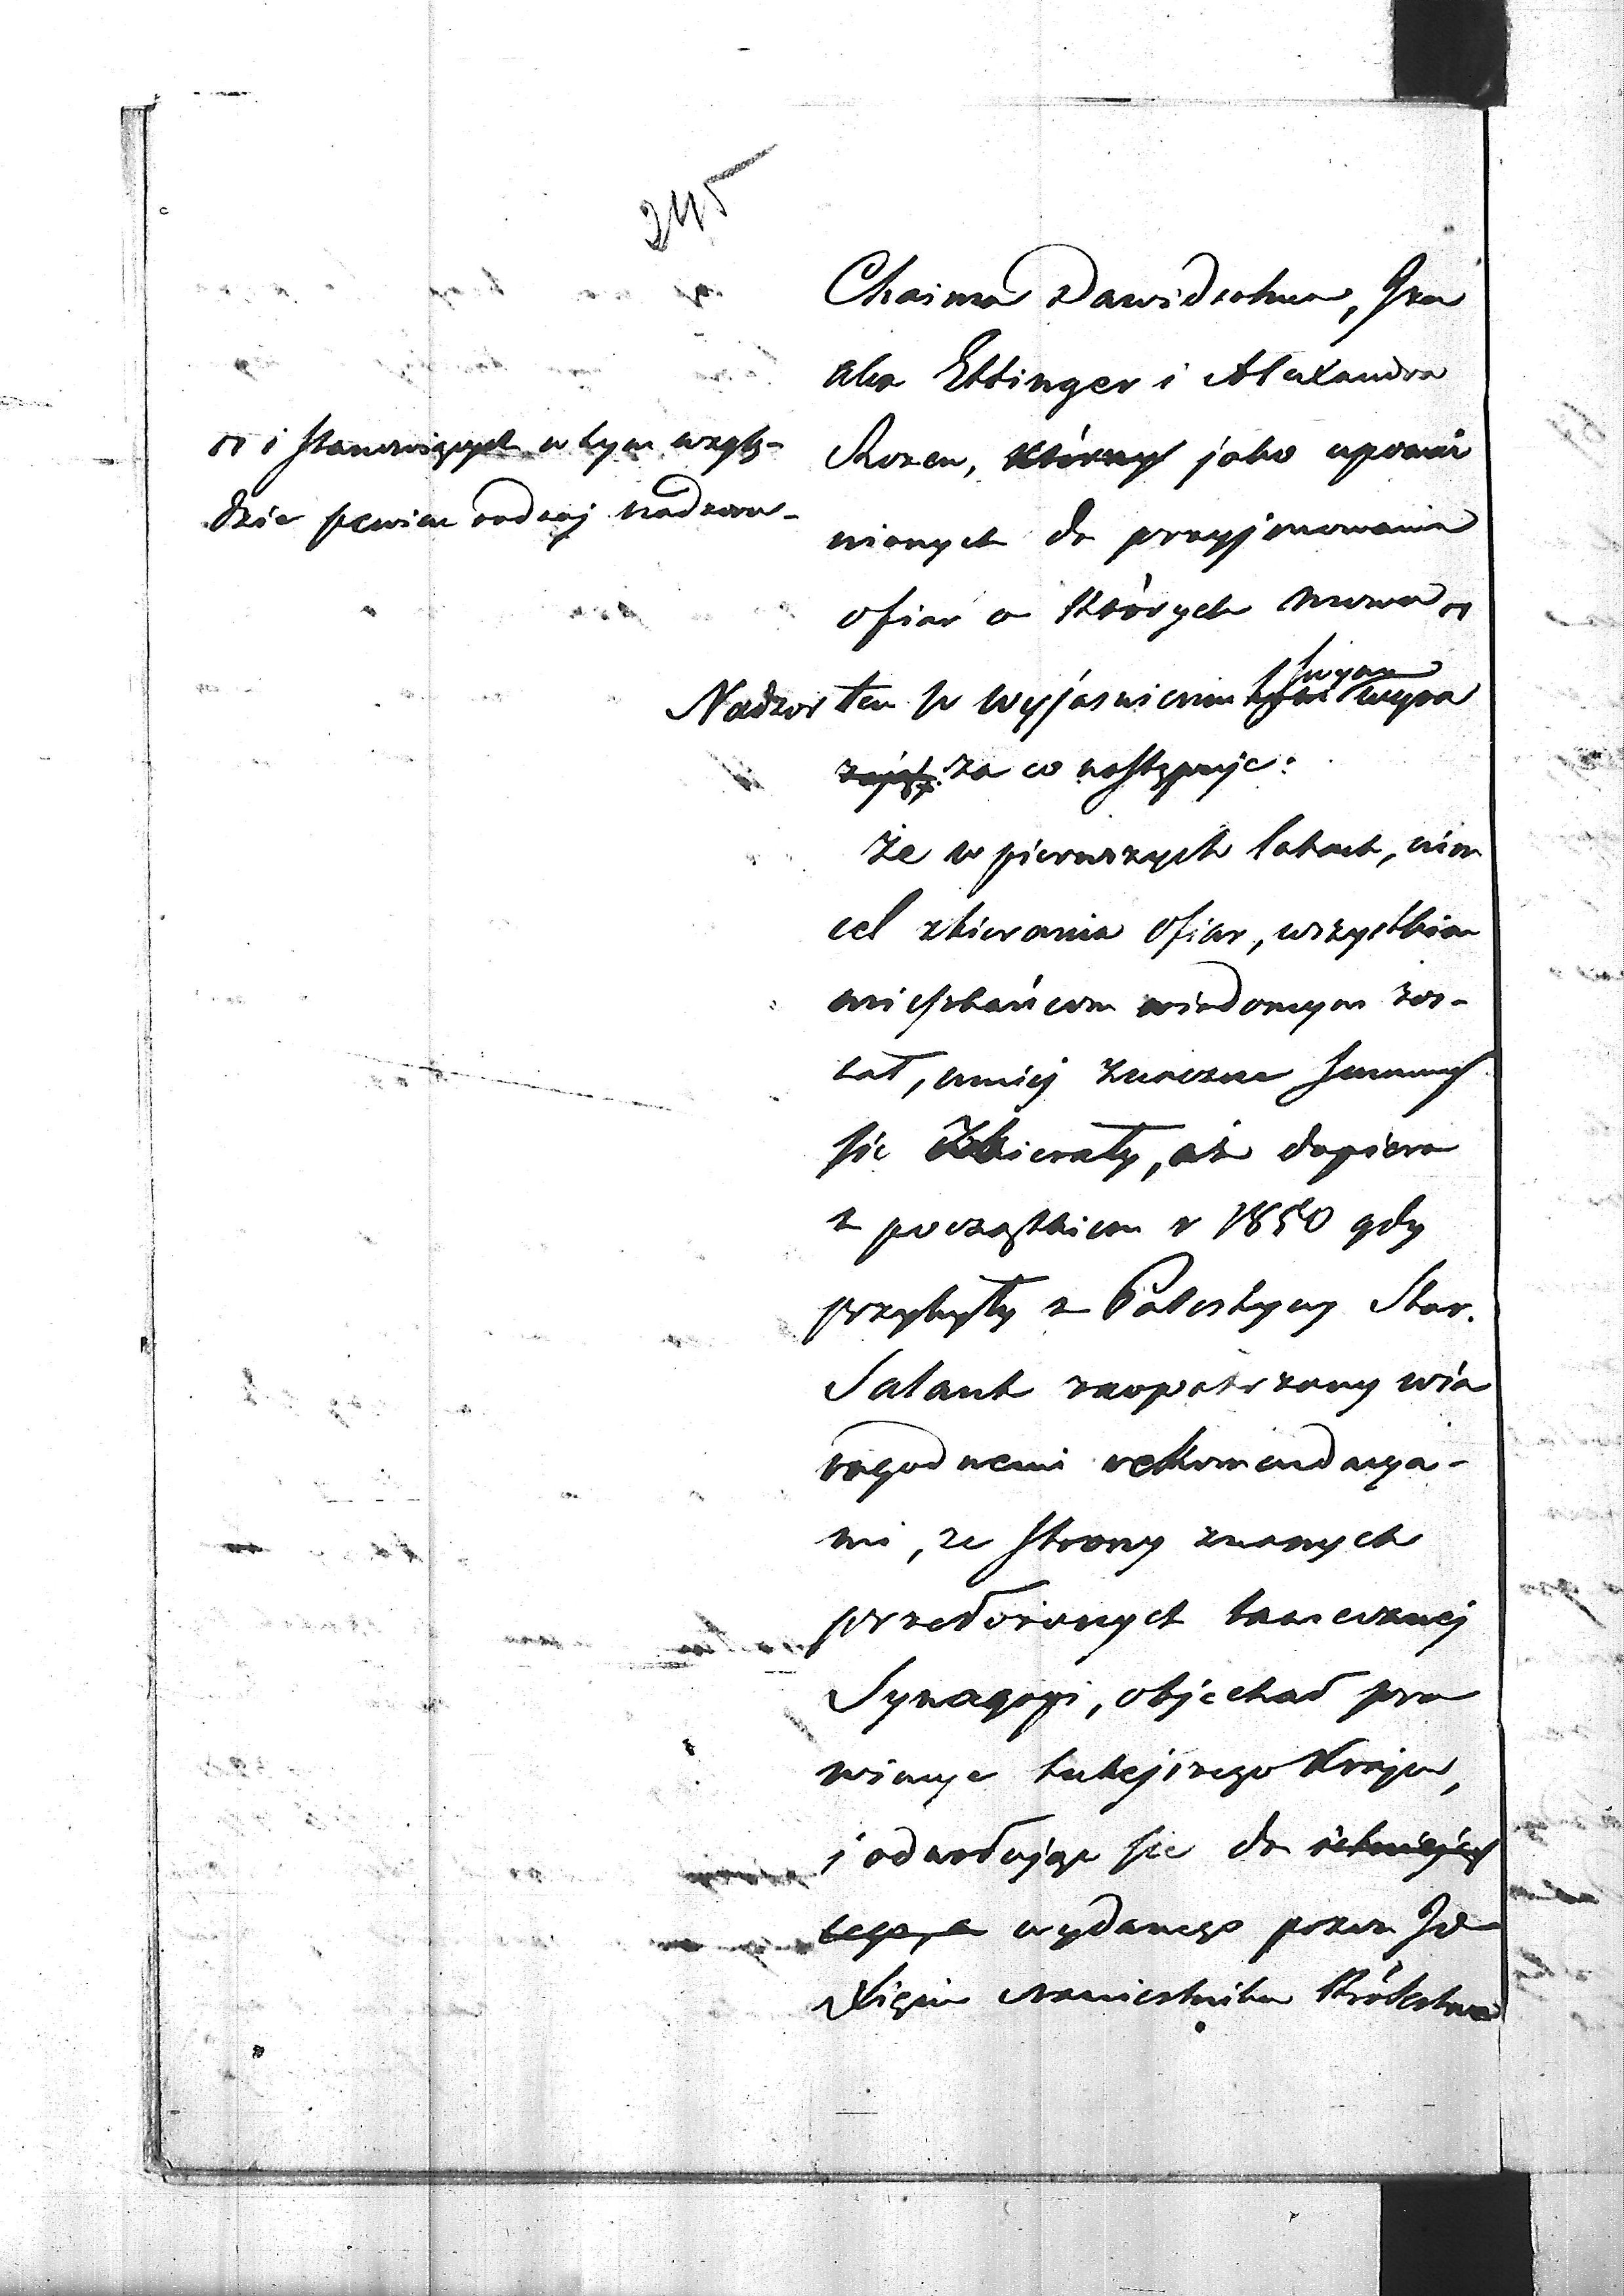 245
Chaima Dawidsohna, Iza
aka Ettinger i Alexandra
Rozen, którzy jako upoważ
nionych do przyjmowania
ofiar o których mowa
i stanowiących w tym wzglę-
dzie pewien rodzaj nadzoru-
Nadzór ten w wyjaśnieniu swym wyra
za co następuje:
że w pierwszych latach, nim
cel zbierania ofiar, wszystkim
mieszkańcom wiadomym zos-
tał, mniej znaczne summy
się zbierały, aż dopiero
z początkiem r 1850 gdy
przybyły z Palestyny Star.
Salant zaopatrzony wia
rogodnemi rekomendacya-
mi, ze strony znanych
przełożonych tamecznej
Synagogi, objechał pro
wincye tutejszego Kraju,
i odwołując się do
tego, a wydanego przez JO
Xięcia Namiestnika Królestwa